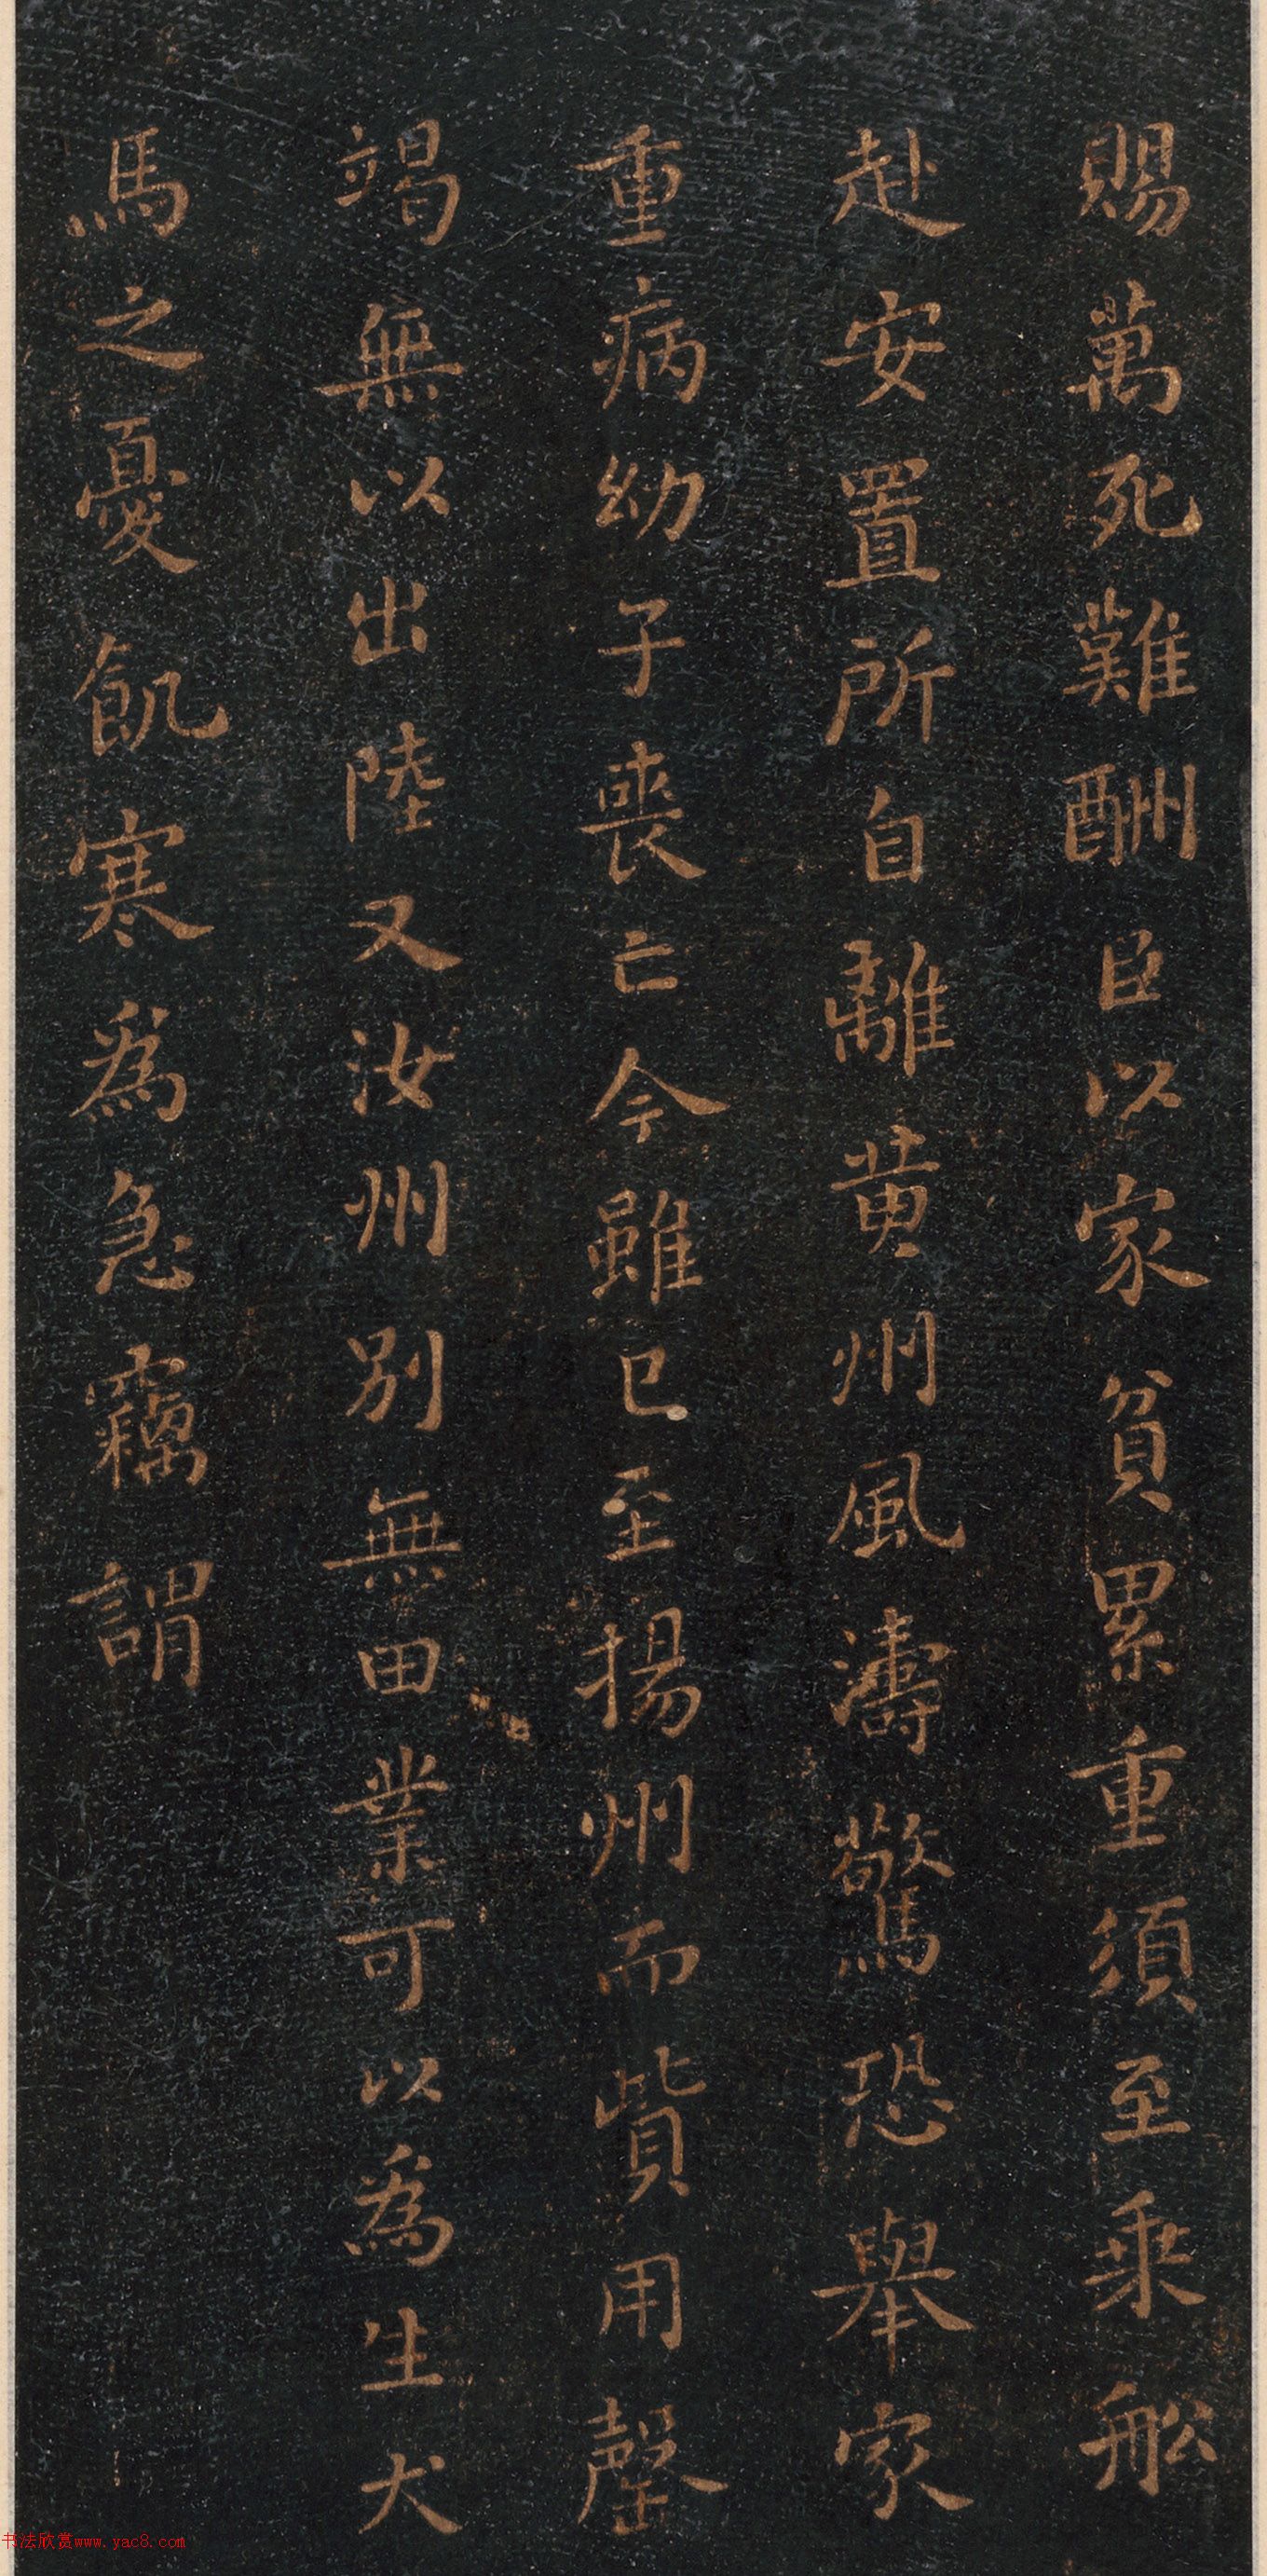 賜萬死難酬臣以家貧累重須至乘舩
赴安置所自離黃州風濤驚恐舉家
重病幼子喪亡今雖已至揚州而貲用罄
竭無以出陸又汝州別無田業可以為生犬
馬之憂飢寒為急竊謂
书法欣赏www.yac8.com